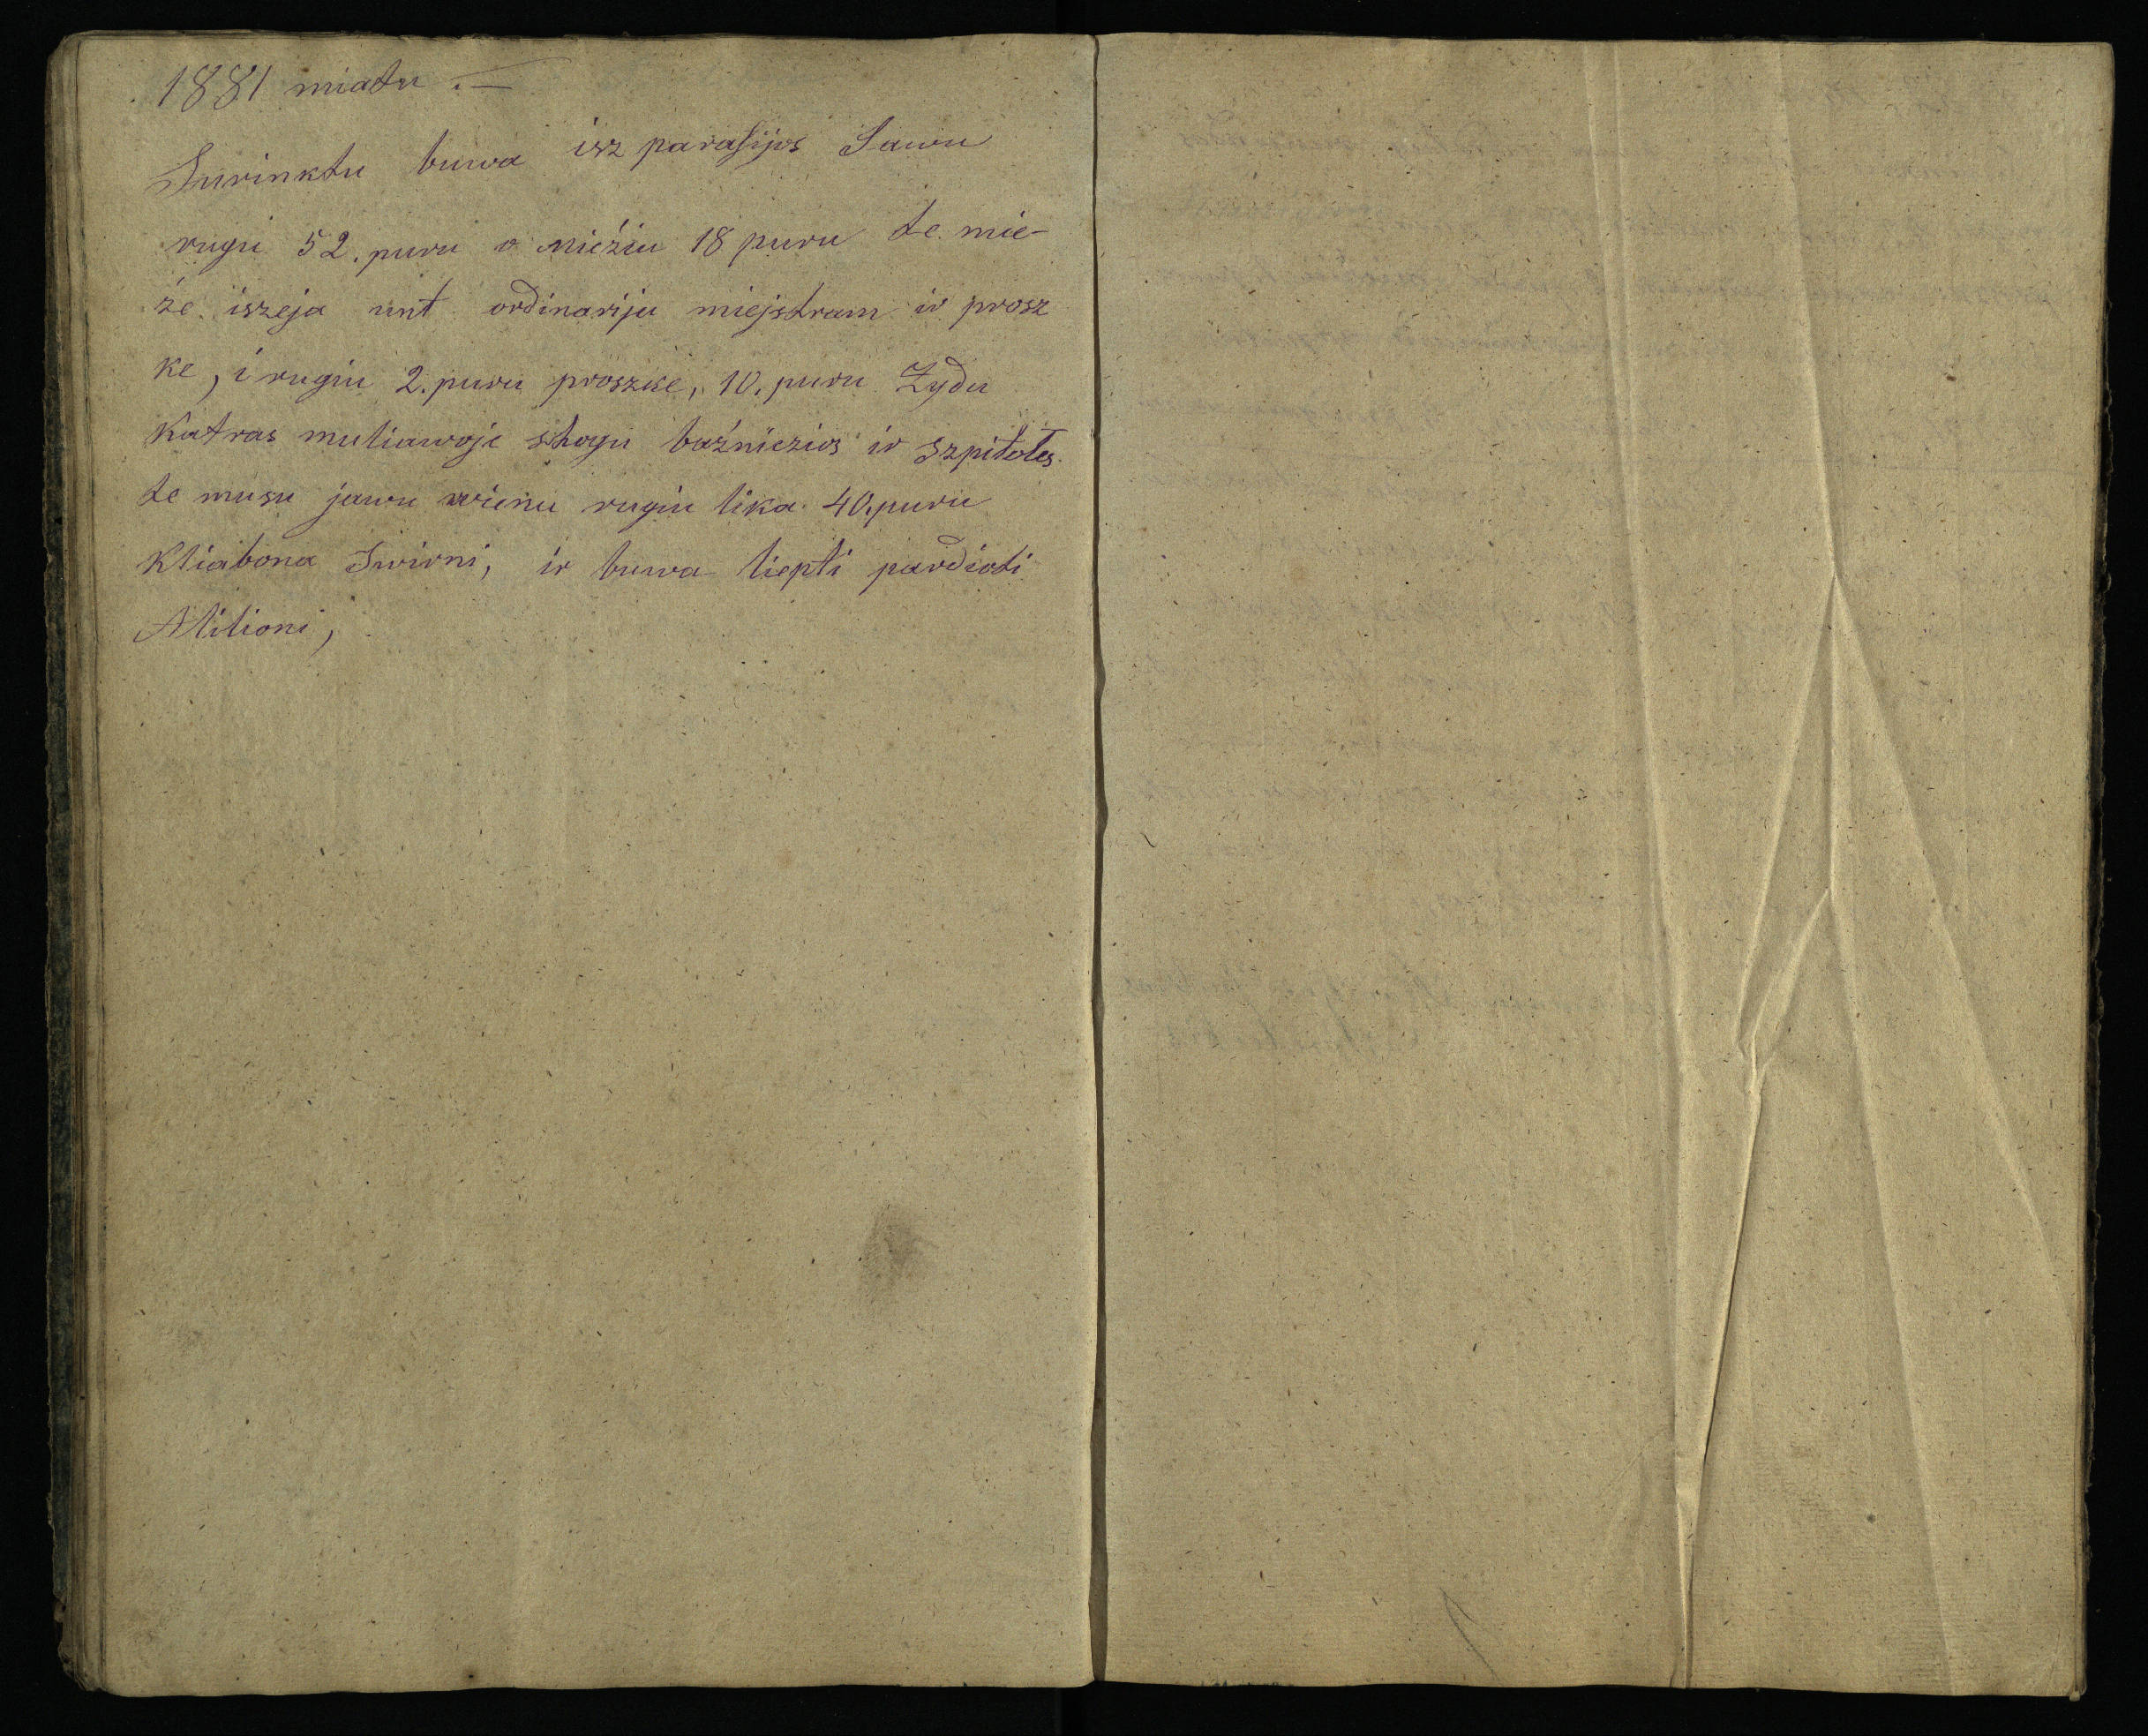 1881 miatu . —
Surinktu buwa isz parafijos Jawu
rugiu 52. puru o Miežiu 18 puru te mie-
že iszeja unt ordinariju miejstram ir prosz
ke, i rugiu 2. puru proszke, 10. puru Zydu
Katras muliawoje stogu bažniczios ir Szpitoles.
te musu jawu wienu rugiu lika. 40. puru
Kliabona Swirni, ir buwa liepti pardioti
Militioni,